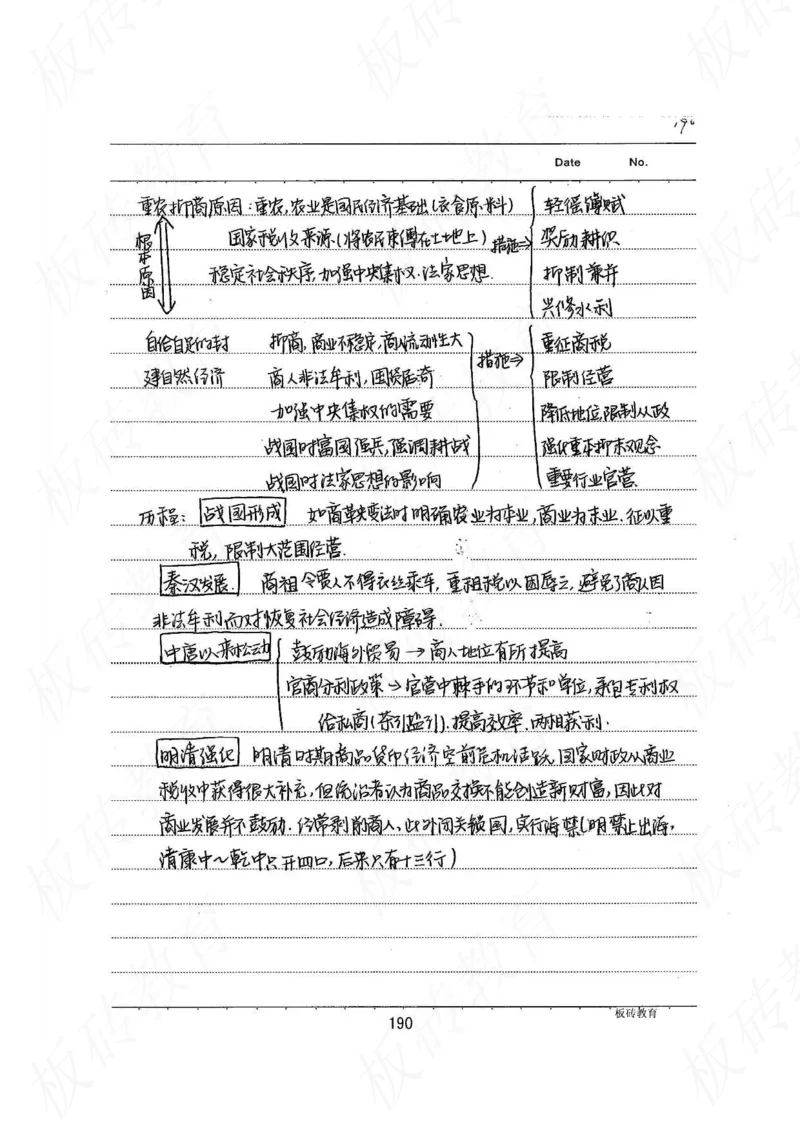 190
Date No.
重农抑商原因：重农，农业是国民经济基础（衣食原料） 轻徭薄赋
根本原因 国家税收来源（将农民束缚在土地上） 措施⇒ 奖励耕织
稳定社会秩序，加强中央集权．法家思想． 抑制兼并
兴修水利
自给自足的封 抑商，商业不稳定，商人流动性大 措施⇒ 重征商税
建自然经济 商人非法牟利，囤货居奇 限制经营
加强中央集权的需要 降低地位，限制从政
战国时富国强兵，强调耕战 强化重本抑末观念
战国时法家思想的影响 重要行业官营．
历程： 战国形成 如商鞅变法时明确农业为本业，商业为末业．征以重
税，限制大范围经营．
秦汉发展． 商祖令贾人不得衣丝乘车，重租税以困辱之，避免了商人因
非法牟利而对恢复社会经济造成障碍．
中唐以来松动 鼓励海外贸易 → 商人地位有所提高
官商分利政策 → 官营中棘手的环节和单位，承包专利权
给私商（茶引盐引）．提高效率．两相获利．
明清强化 明清时期商品货币经济空前危机活跃，国家财政从商业
税收中获得很大补充，但统治者认为商品交换不能创造新财富，因此对
商业发展并不鼓励．经常剥削商人、此外闭关锁国，实行海禁（明禁止出海，
清康中～乾中只开四口，后来只有十三行）
板砖教育
190